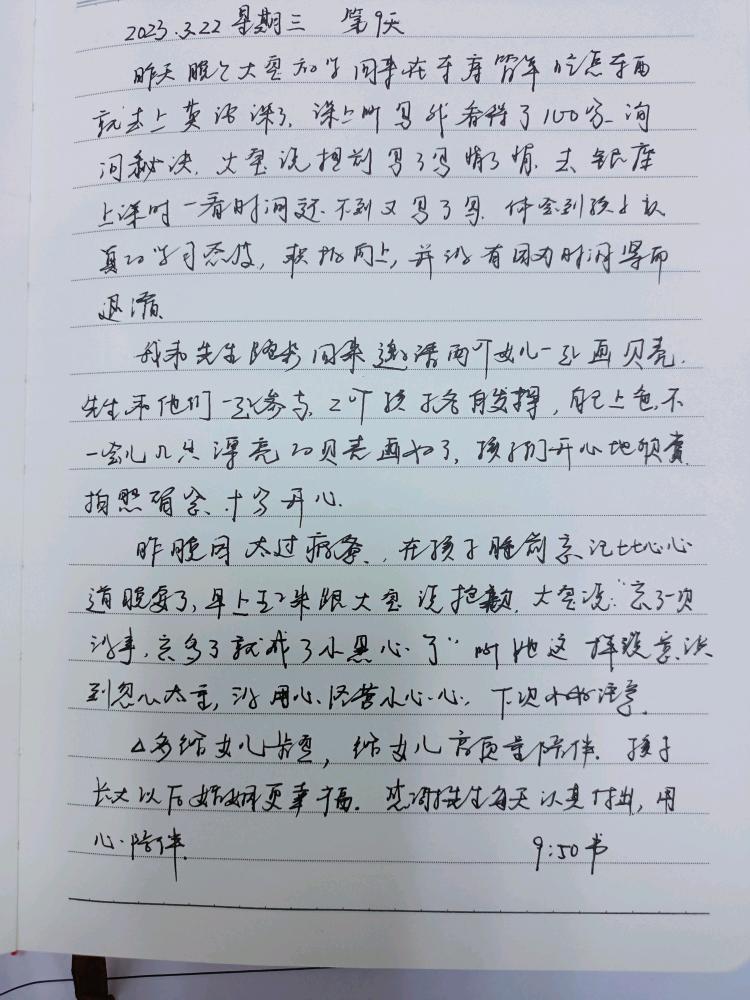 2023.3.22 星期三 第9天
昨天晚上大宝放学回来在车库
就去上英语课了,课上听写我看得了100分、询
问秘诀,大宝说提前写了写,去银座
上课时一看时间还不到又写了写,体会到孩子认
真的学习态度,积极向上,并没有因为时间紧而
退
我和先生回来邀请两个女儿一起画贝壳,
先生和他们一起参与,2个孩子各自发挥,自己上色,不
一会儿几只漂亮的贝壳画好了,孩子们开心地欣赏、
拍照留念、十分开心.
昨晚因太过疲惫,在孩子睡前忘记比心心
道晚安了,早上起来跟大宝说抱歉,大宝说:“忘了一次
没事,忘多了就成了小黑心了”听她这样说意识
到忽心大意,没用心经营小心心,下次
△多给女儿,给女儿高质量陪伴.孩子
长大以后婚姻更幸福.感谢先生每天认真付出,用
心陪伴.
9:50书